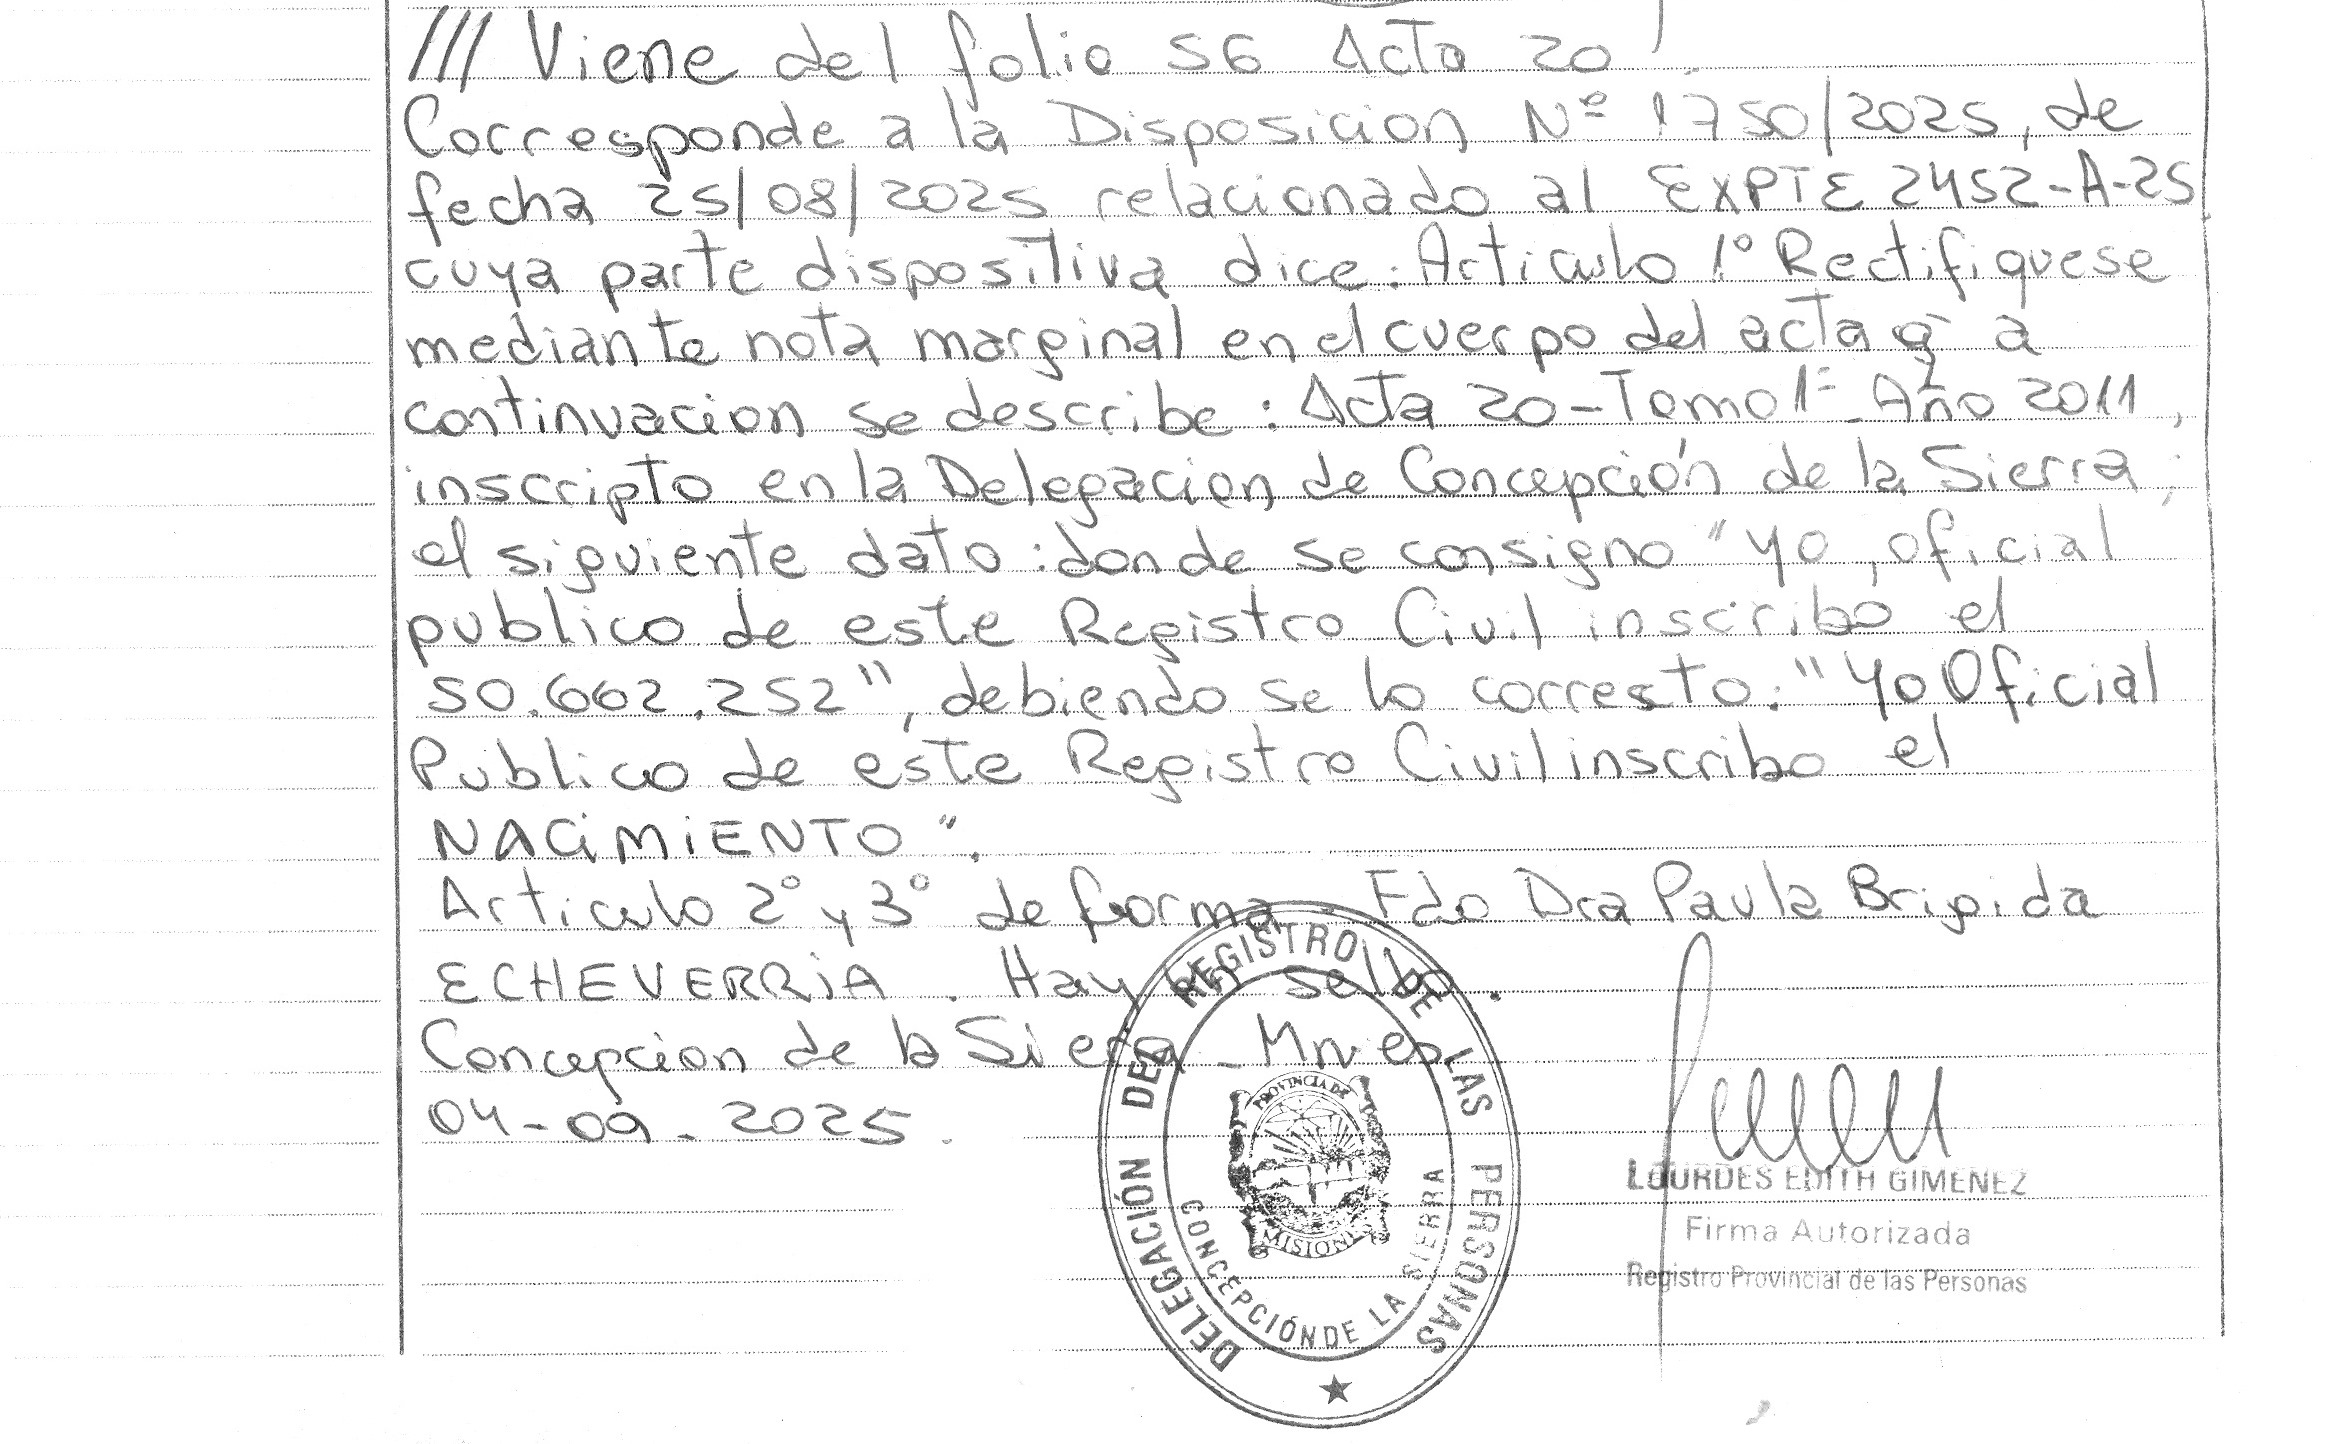 /// Viene del folio 56 Acta 20
Corresponde a la Disposicion Nº 1750/2025, de
fecha 25/08/2025 relacionado al EXPTE 2452-A-25.
cuya parte dispositiva dice: Articulo 1º Rectifiquese
mediante nota marginal en el cuerpo del acta q a
continuacion se describe: Acta 20-Tomo 1º- Año 2011,
inscripto en la Delegacion de Concepción de la Sierra;
el siguiente dato: donde se consigno "yo, oficial
publico de este Registro Civil inscribo el
50.662.252", debiendo se lo correcto: "Yo Oficial
Publico de este Registro Civil inscribo el
NACIMIENTO".
Articulo 2º y 3º de forma - Fdo Dra Paula Brigida
ECHEVERRIA. Hay un sello.
Concepcion de la Sierra - Mnes
04-09-2025.
DELEGACIÓN DEL REGISTRO DE LAS PERSONAS
CONCEPCIÓN DE LA SIERRA
PROVINCIA DE
MISIONES
LOURDES EDITH GIMENEZ
Firma Autorizada
Registro Provincial de las Personas